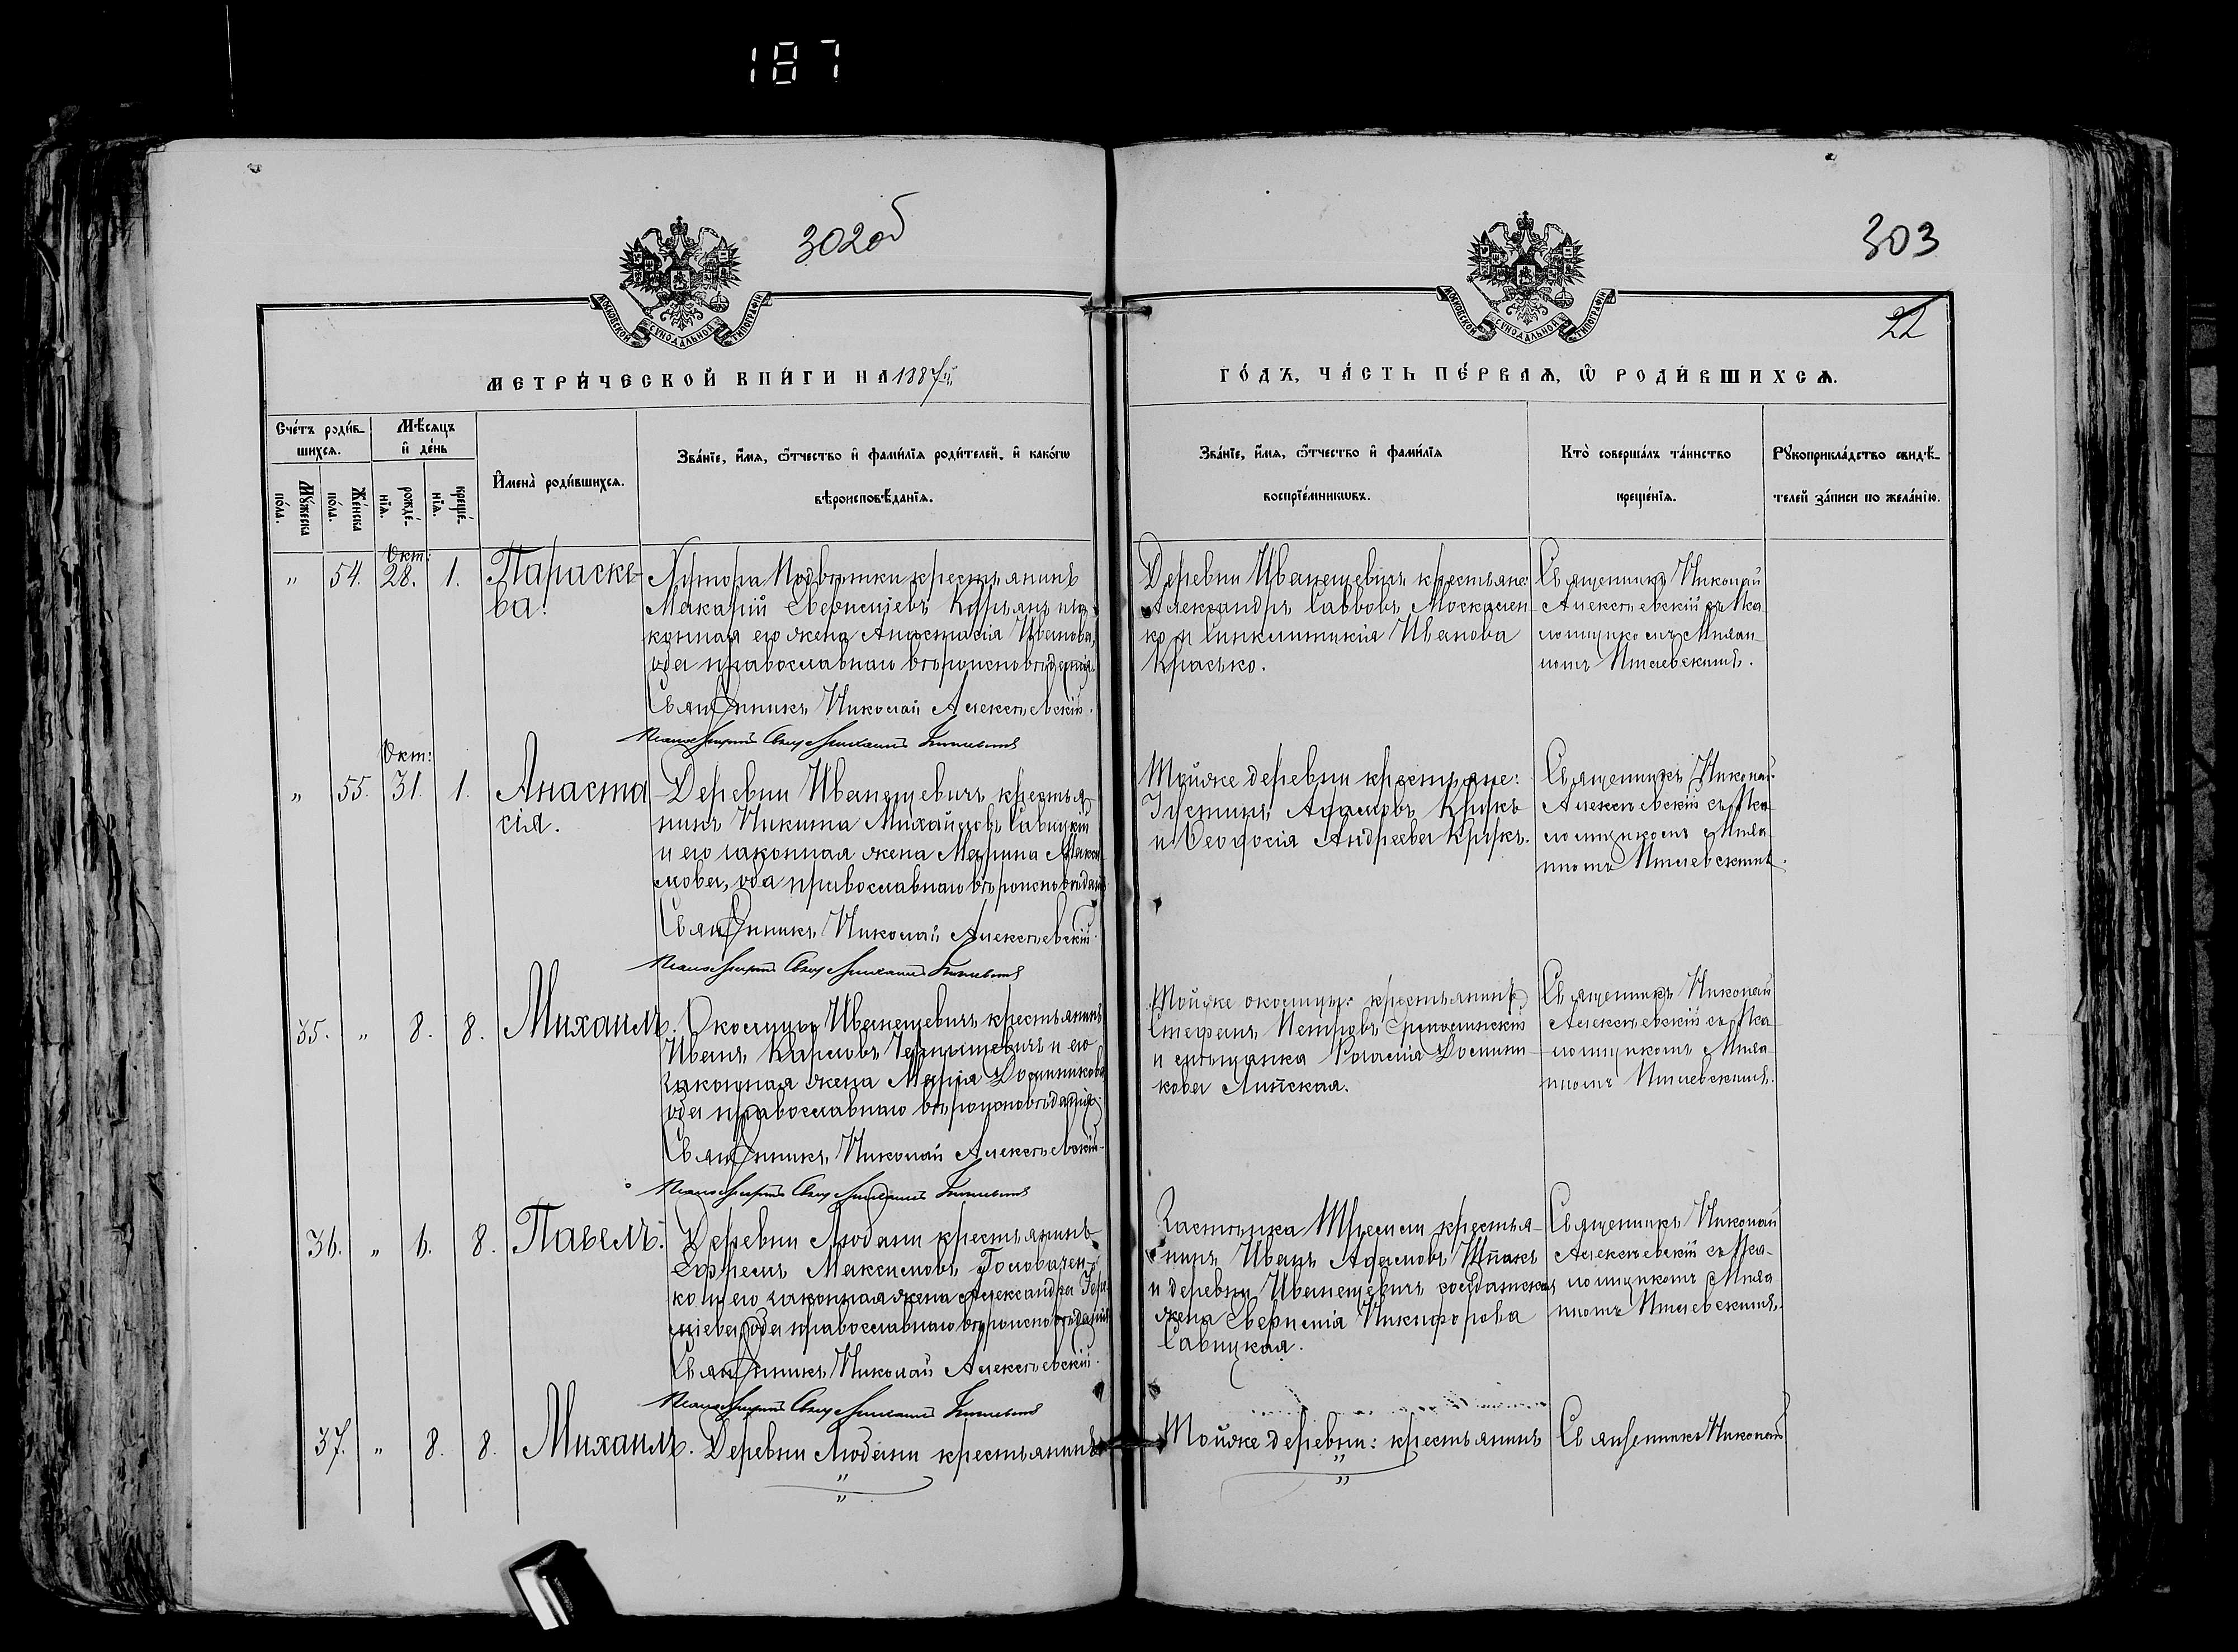 187
302об
303
22
МОСКОВСКОЙ СѴНОДАЛЬНОЙ ТИПОГРАФІИ
МОСКОВСКОЙ СѴНОДАЛЬНОЙ ТИПОГРАФІИ
МЕТРИ́ЧЕСКОЙ КНИ́ГИ НА 1887й
ГО́ДЪ, ЧА́СТЬ ПЕ́РВАѦ, Ѡ҆ РОДИ́ВШИХСѦ.
Сче́тъ роди́в-
шихсѧ.
Мѣ́сяцъ
и҆ де́нь
Мꙋ́жеска
по́ла.
Же́нска
по́ла.
рожде́-
нїѧ.
креще́-
нїѧ.
И҆мена̀ роди́вшихсѧ.
Зва́нїе, и҆́мѧ, ѻ҆́тчество и҆ фами́лїѧ роди́телей, и҆ како́гѡ
вѣроисповѣ́данїѧ.
Зва́нїе, и҆́мѧ, ѻ҆́тчество и҆ фами́лїѧ
воспрїе́мникѡвъ.
Кто̀ соверша́лъ та́инство
креще́нїѧ.
Рꙋкоприкла́дство свидѣ́-
телей за́писи по жела́нїю.
Окт:
" 54. 28. 1.
Параске-
ва.
Хутора крестьянинъ
Макарій
конная его жена Анастасія Иванова,
оба православнаго вѣроисповѣданія.
Священникъ Николай Алексѣевскій.
Деревни Иванешевичъ крестьяне:
Александръ Саввовъ Москален-
ко и Синклитикія Иванова
Красько.
Священникъ Николай
Алексѣевскій съ Пса-
ломщикомъ
Окт:
" 55. 31. 1.
Анаста
сія.
Деревни Иванешевичъ крестья-
нинъ Никита Михайловъ Савицкій
и его законная жена Марина
оба православнаго вѣроисповѣданія
Священникъ Николай Алексѣевскій.
Тойже деревни крестьяне:
Іустинъ Адамовъ Крукъ
и Ѳеодосія Андреева Крукъ.
Священникъ Николай
Алексѣевскій съ Пса-
ломщикомъ
35. " 8. 8.
Михаилъ.
Околицы Иванешевичъ крестьянинъ
Иванъ Карповъ и его
законная жена Марія Доминикова
оба православнаго вѣроисповѣданія.
Священникъ Николай Алексѣевскій.
Тойже околицы: крестьянинъ
Стефанъ Петровъ
и мѣщанка Розалія Домини-
кова Липская.
Священникъ Николай
Алексѣевскій съ Пса-
ломщикомъ
36. " 6. 8.
Павелъ.
Деревни Любани крестьянинъ
Ефремъ Максимовъ Головачен-
ко и его законная жена Александра
оба православнаго вѣроисповѣданія
Священникъ Николай Алексѣевскій.
Застѣнка крестья-
нинъ Иванъ Адамовъ Шпакъ
и деревни Иванешевичъ солдатская
жена Никифорова
Савицкая.
Священникъ Николай
Алексѣевскій съ Пса-
ломщикомъ
37. " 8. 8.
Михаилъ.
Деревни Любани крестьянинъ
Тойже деревни: крестьянинъ
Священникъ Николай